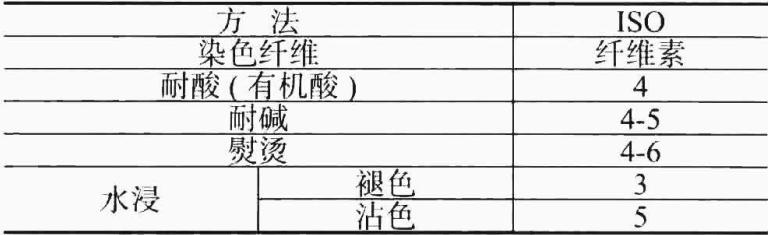 方 法 ISO
染色纤维 纤维素
耐酸 ( 有机酸 ) 4
耐碱 4-5
熨烫 4-6
水浸 褪色 3
沾色 5